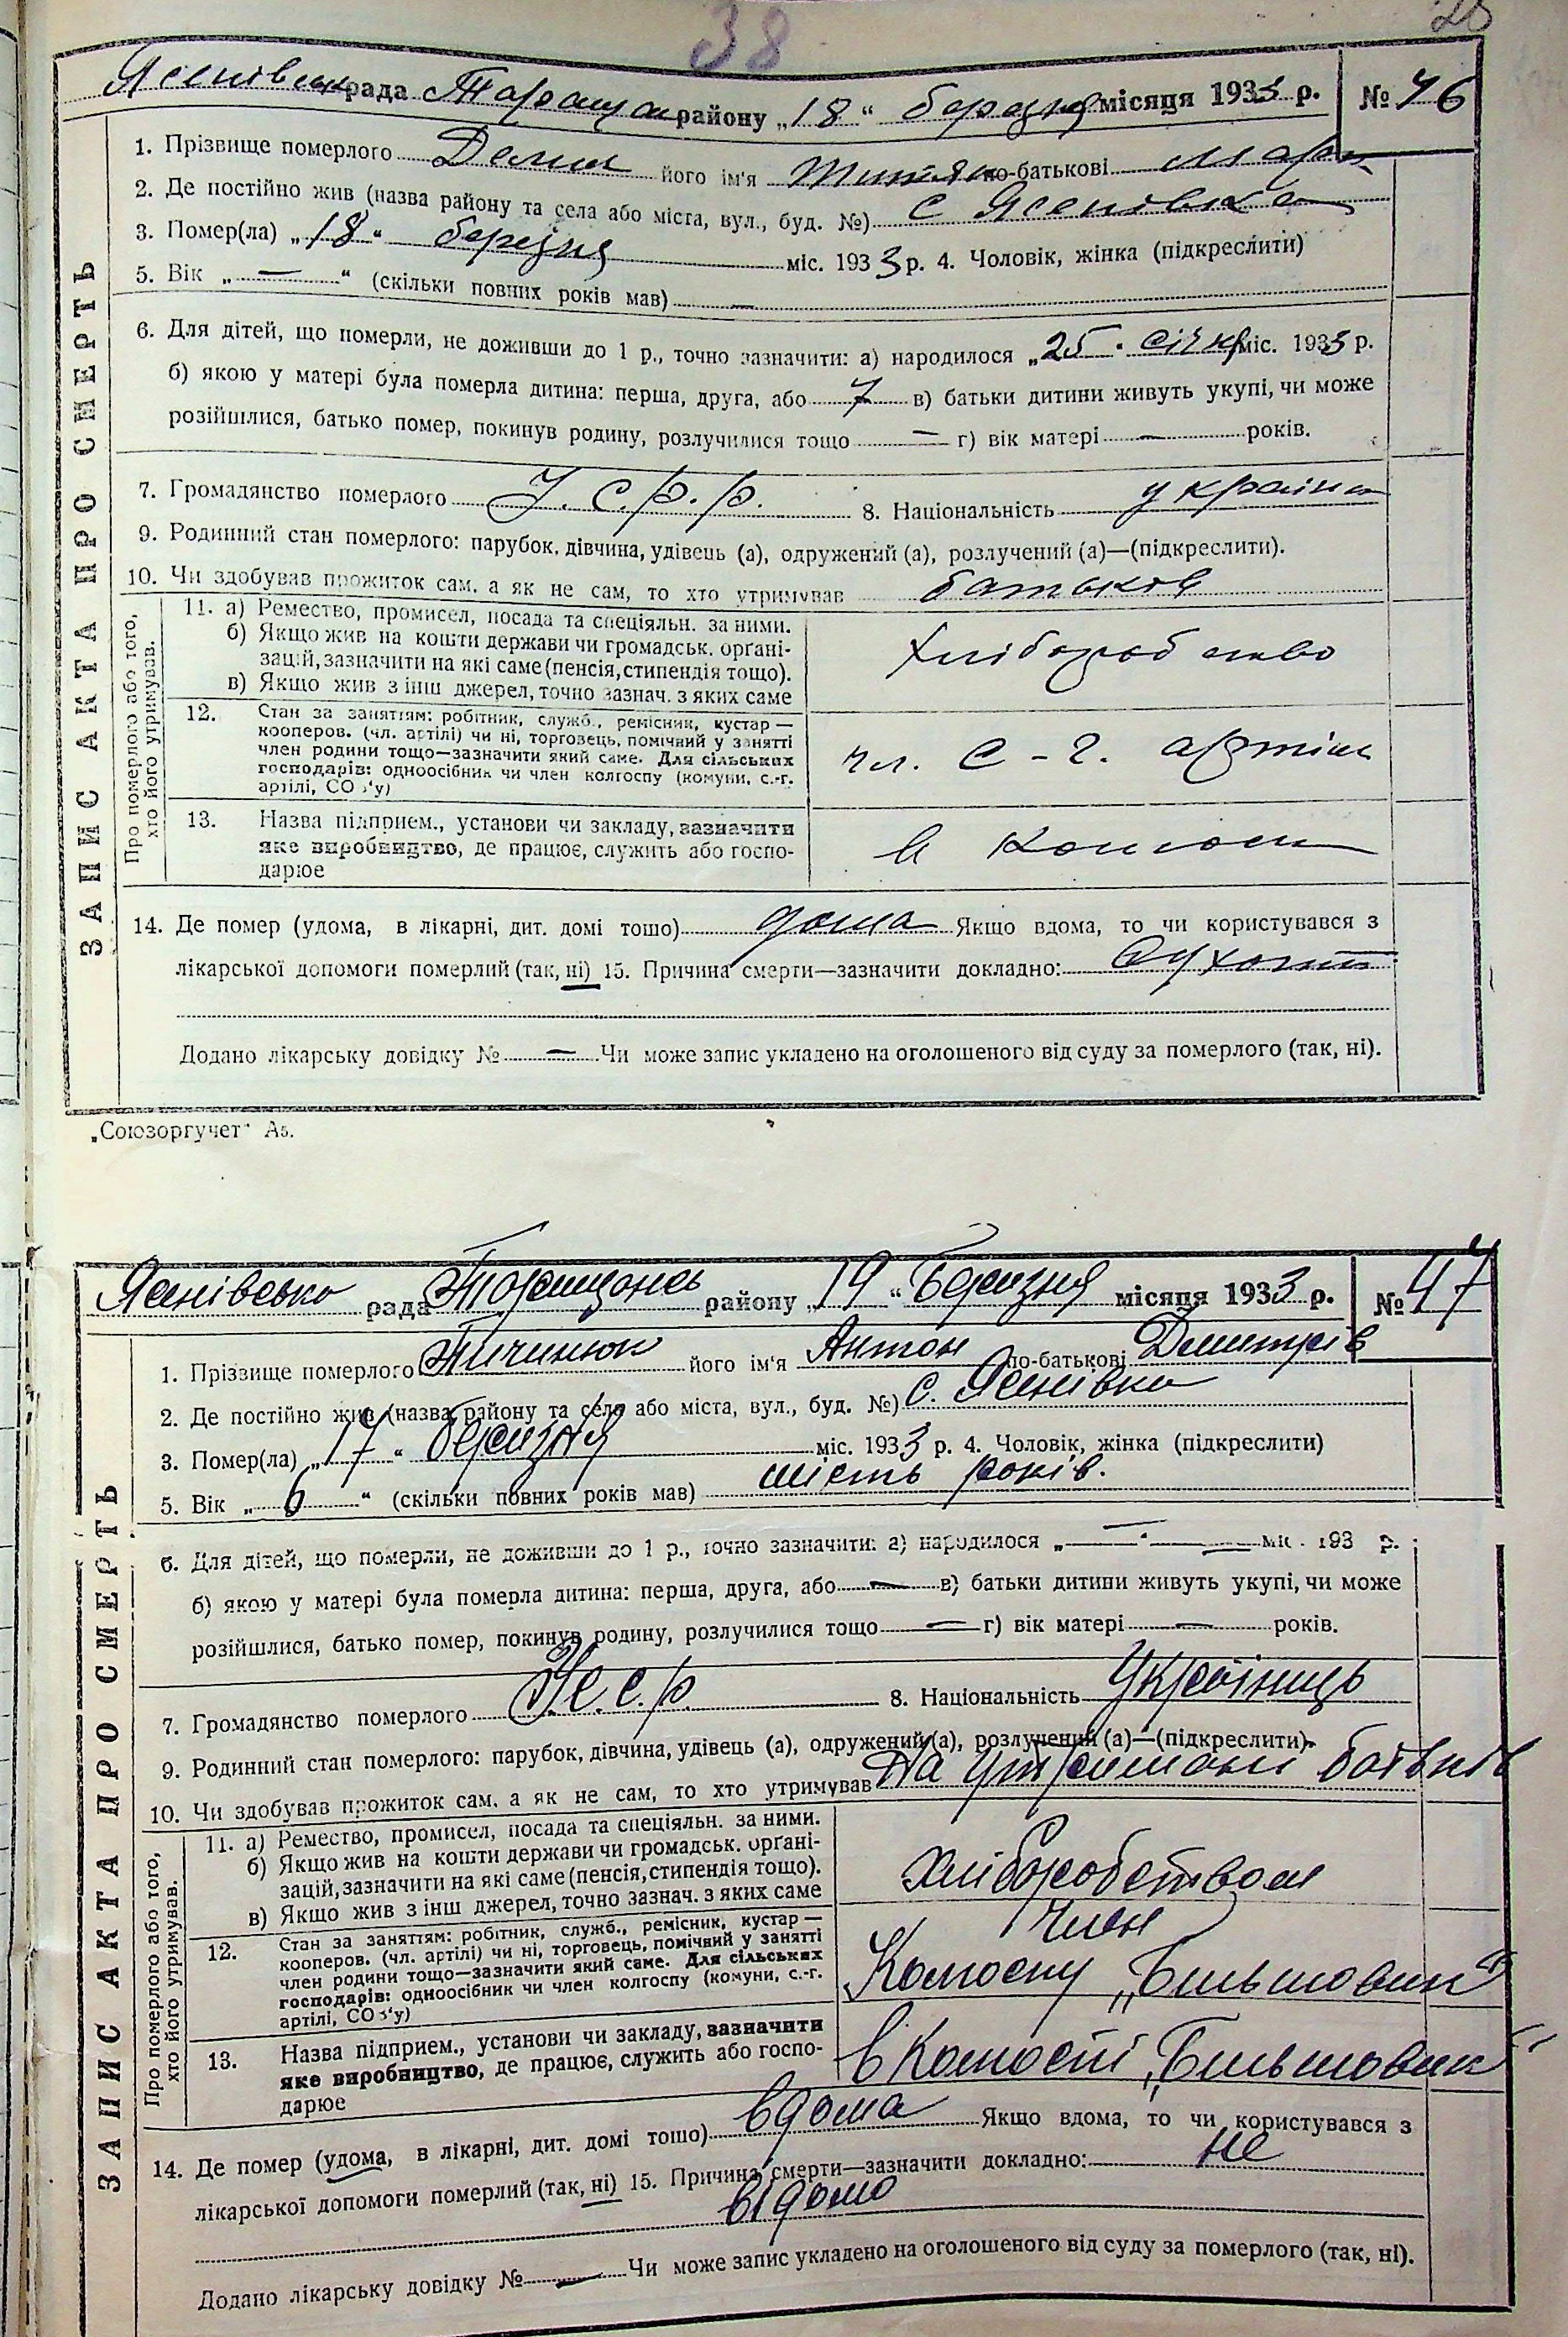 38
28
Ясенівська рада Таращан району „18“ березня місяця 1933 р. № 46
ЗАПИС АКТА ПРО СМЕРТЬ
1. Прізвище померлого його ім'я по-батькові
2. Де постійно жив (назва району та села або міста, вул., буд. №) с Ясенівка
3. Помер(ла) „18“ березня міс. 1933 р. 4. Чоловік, жінка (підкреслити)
5. Вік „—“ (скільки повних років мав) —
6. Для дітей, що померли, не доживши до 1 р., точно зазначити: а) народилося „25“ січня міс. 1933 р.
б) якою у матері була померла дитина: перша, друга, або 7 в) батьки дитини живуть укупі, чи може
розійшлися, батько помер, покинув родину, розлучилися тощо — г) вік матері — років.
7. Громадянство померлого У.С.Р.Р. 8. Національність україн
9. Родинний стан померлого: парубок, дівчина, удівець (а), одружений (а), розлучений (а)—(підкреслити).
10. Чи здобував прожиток сам, а як не сам, то хто утримував батьків
Про померлого або того, хто його утримував.
11. а) Ремество, промисел, посада та спеціяльн. за ними.
б) Якщо жив на кошти держави чи громадськ. орґані-
зацій, зазначити на які саме (пенсія, стипендія тощо).
в) Якщо жив з інш джерел, точно зазнач. з яких саме
хліборобство
12. Стан за заняттям: робітник, служб., ремісник, кустар —
кооперов. (чл. артілі) чи ні, торговець, помічний у занятті
член родини тощо—зазначити який саме. Для сільських
господарів: одноосібник чи член колгоспу (комуни, с.-г.
артілі, СОЗ'у)
чл. с-г. артіли
13. Назва підприєм., установи чи закладу, зазначити
яке виробництво, де працює, служить або госпо-
дарює
в
14. Де помер (удома, в лікарні, дит. домі тошо) дома Якщо вдома, то чи користувався з
лікарської допомоги померлий (так, ні) 15. Причина смерти—зазначити докладно: сухоти
Додано лікарську довідку № — Чи може запис укладено на оголошеного від суду за померлого (так, ні).
„Союзоргучет“ А5.
Ясенівсько рада Таращансь району „19“ Березня місяця 1933 р. № 47
ЗАПИС АКТА ПРО СМЕРТЬ
1. Прізвище померлого Тичинюк його ім'я Антон по-батькові Дмитрів
2. Де постійно жив (назва району та села або міста, вул., буд. №) с. Ясенівка
3. Помер(ла) „17“ березня міс. 1933 р. 4. Чоловік, жінка (підкреслити)
5. Вік „6“ (скільки повних років мав) шість років.
6. Для дітей, що померли, не доживши до 1 р., точно зазначити: а) народилося „—“ — міс. 193 р.
б) якою у матері була померла дитина: перша, друга, або — в) батьки дитини живуть укупі, чи може
розійшлися, батько помер, покинув родину, розлучилися тощо — г) вік матері — років.
7. Громадянство померлого 8. Національність Українець
9. Родинний стан померлого: парубок, дівчина, удівець (а), одружений (а), розлучений (а)—(підкреслити).
10. Чи здобував прожиток сам, а як не сам, то хто утримував На утримані батьків
Про померлого або того, хто його утримував.
11. а) Ремество, промисел, посада та спеціяльн. за ними.
б) Якщо жив на кошти держави чи громадськ. орґані-
зацій, зазначити на які саме (пенсія, стипендія тощо).
в) Якщо жив з інш джерел, точно зазнач. з яких саме
хліборобством
12. Стан за заняттям: робітник, служб., ремісник, кустар —
кооперов. (чл. артілі) чи ні, торговець, помічний у занятті
член родини тощо—зазначити який саме. Для сільських
господарів: одноосібник чи член колгоспу (комуни, с.-г.
артілі, СОЗ'у)
член
Колгоспу „Більшовик“
13. Назва підприєм., установи чи закладу, зазначити
яке виробництво, де працює, служить або госпо-
дарює
в Колгоспі „Більшовик“
14. Де помер (удома, в лікарні, дит. домі тошо) вдома Якщо вдома, то чи користувався з
лікарської допомоги померлий (так, ні) 15. Причина смерти—зазначити докладно: не
відомо
Додано лікарську довідку № — Чи може запис укладено на оголошеного від суду за померлого (так, ні).